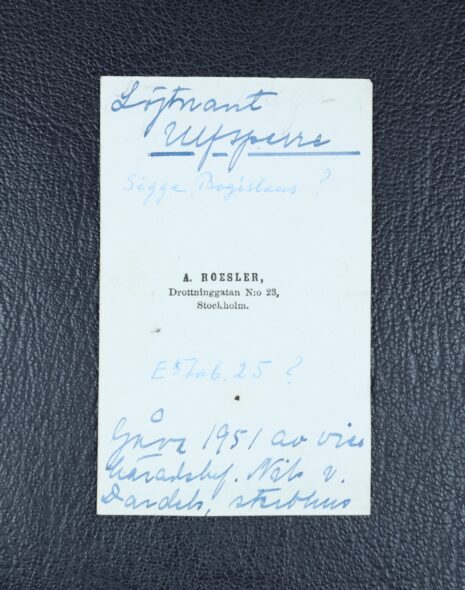 Löjtnant
Ulfsparre
Sigge Bogislaus ?
A. ROESLER,
Drottninggatan N:o 23,
Stockholm.
Tab. 25 ?
Gåva 1951 av vice
häradshf. Nils v.
Dardels, sterbhus